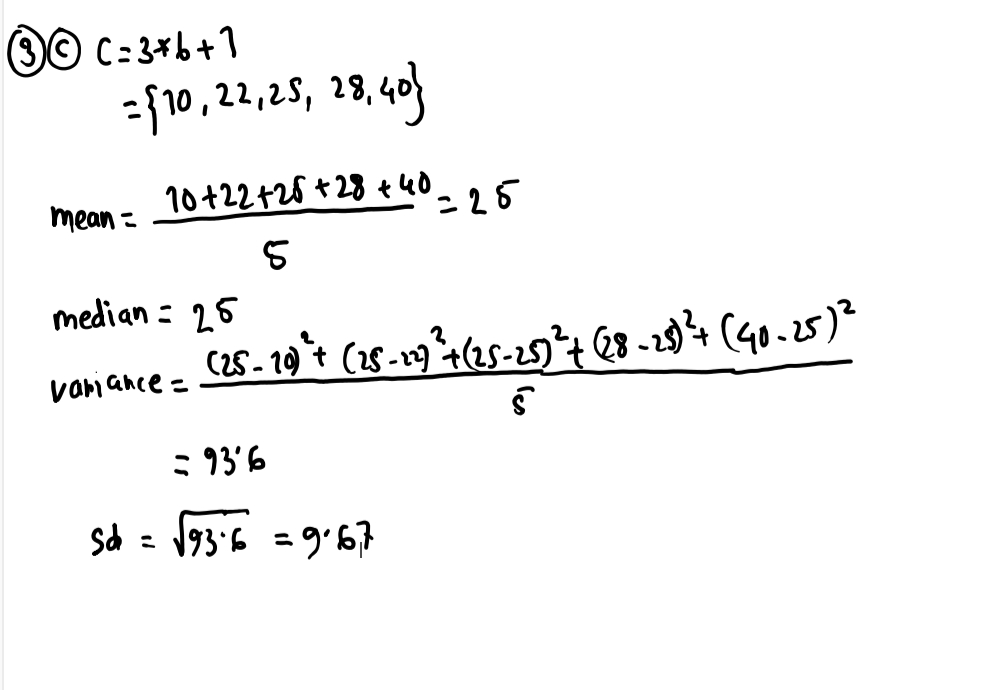 ③ⓒ C=3*b+1
={10,22,25, 28,40}
mean = (10+22+25+28+40)/5 = 25
median = 25
variance = ((25-10)²+(25-22)²+(25-25)²+(28-25)²+(40-25)²)/5
= 93.6
sd = √93.6 = 9.67